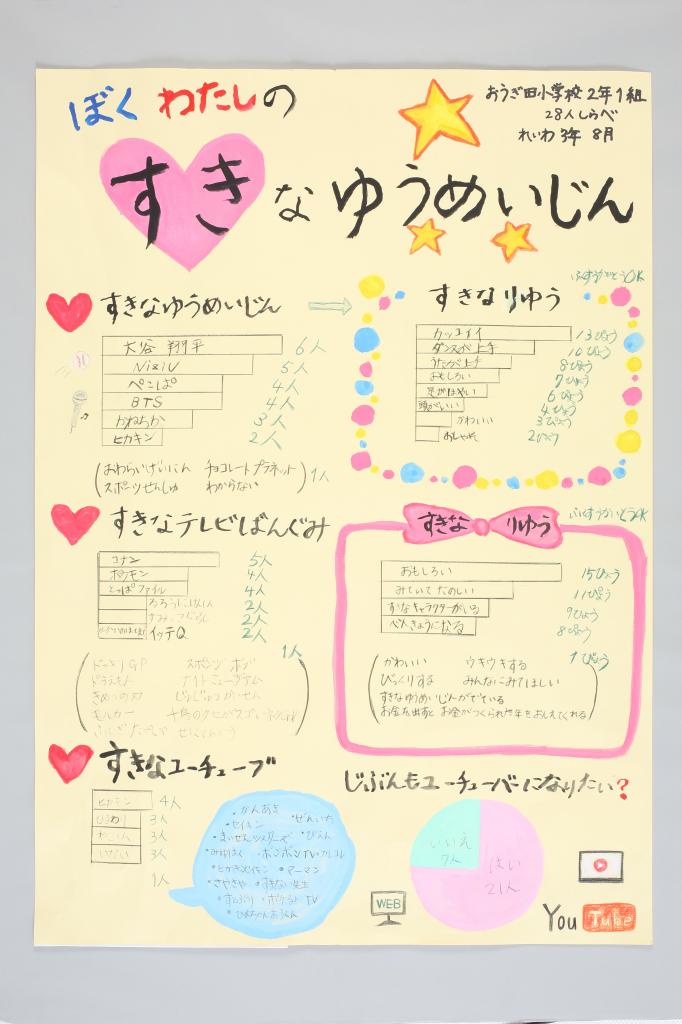 ぼくわたしの
おうぎ田小学校2年1組
28人しらべ
れいわ3年8月
すきなゆうめいじん
すきなゆうめいじん
大谷翔平 6人
NiziU 5人
ぺこぱ 4人
BTS 4人
かねちか 3人
ヒカキン 2人
(おわらいげいにん チョコレートプラネット
スポーツせんしゅ わからない) 1人
ふくすうかいとうOK
すきなりゆう
カッコイイ 13ぴょう
ダンスが上手 10ぴょう
うたが上手 8ぴょう
おもしろい 7ぴょう
足がはやい 6ぴょう
頭がいい 4ぴょう
かわいい 3ぴょう
おしゃれ 2ぴょう
すきなテレビばんぐみ
コナン 5人
ポケモン 4人
とっぱファイル 4人
2人
2人
イッテQ 2人
1人
スポンジボブ
ドラえもん ナイトミュージアム
モルカー 千鳥のクセがスゴいネタGP
ふくすうかいとうOK
すきなりゆう
おもしろい 15ぴょう
みていてたのしい 11ぴょう
すきなキャラクターがいる 9ぴょう
べんきょうになる 8ぴょう
1ぴょう
(かわいい ウキウキする
びっくりする みんなにみてほしい
すきなゆうめいじんがでている
お金を出すとお金がつくられた年をおしえてくれる)
すきなユーチューブ
ヒカキン 4人
ひまわり 3人
3人
いない 3人
1人
・かんあき
・セイキン ・ぜんいち
・まいぜんシスターズ
・ボンボンTV
・ヒカキンセイキン ・アーマン
・さやさや
・ポケるんTV
じぶんもユーチューバーになりたい?
いいえ
7人
はい
21人
WEB
YouTube